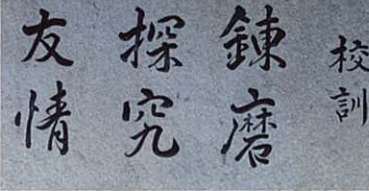 校訓
錬磨
探究
友情